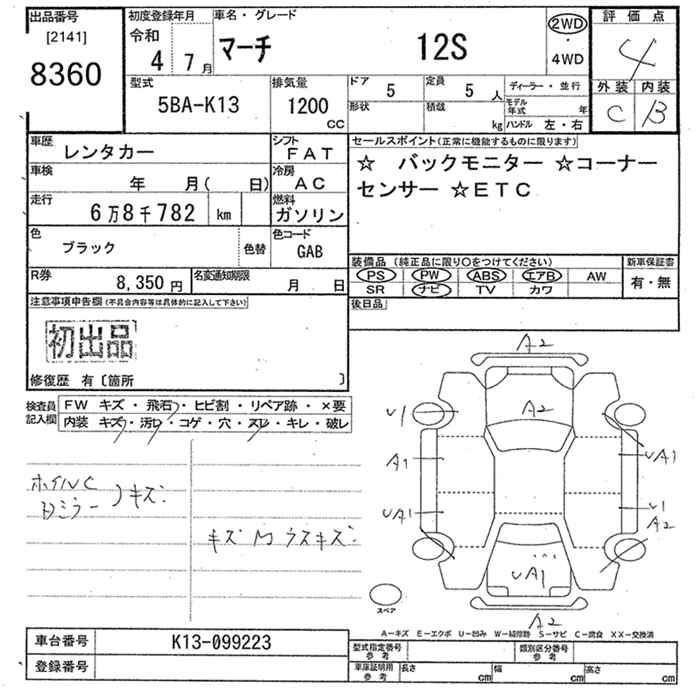 出品番号
[2141]
8360
初度登録年月
令和
4 7月
車名・グレード
マーチ 12S
2WD
・
4WD
評価点
4
外装 内装
C B
型式
5BA-K13
排気量
1200
CC
ドア
5
定員
5 人
形状
積載
kg
ディーラー・並行
モデル年式 年
ハンドル 左・右
車歴
レンタカー
シフト
FAT
車検
年 月( 日)
冷房
AC
走行
6万8千782 km
燃料
ガソリン
色
ブラック
色替
色コード
GAB
R券
8,350円
名変通知期限
月 日
セールスポイント(正常に機能するものに限ります)
☆ バックモニター ☆コーナー
センサー ☆ETC
装備品 (純正品に限り○をつけてください)
PS PW ABS エアB AW
SR ナビ TV カワ
新車保証書
有・無
後日品
注意事項申告欄(不具合内容等は具体的に記入して下さい)
初出品
修復歴 有〔箇所 〕
検査員
記入欄
FW キズ・飛石・ヒビ割・リペア跡・×要
内装 キズ・汚レ・コゲ・穴・スレ・キレ・破レ
ホイルC
キズ
キズ 内 ウスキズ
A2
A2
U1
A1
UA1
UA1
U1
A2
UA1
A2
スペア
A−キズ E−エクボ U−凹み W−補修跡 S−サビ C−腐食 XX−交換済
車台番号
K13-099223
登録番号
型式指定番号
参考
類別区分番号
参考
車庫証明用
参考
長さ cm
幅 cm
高さ cm